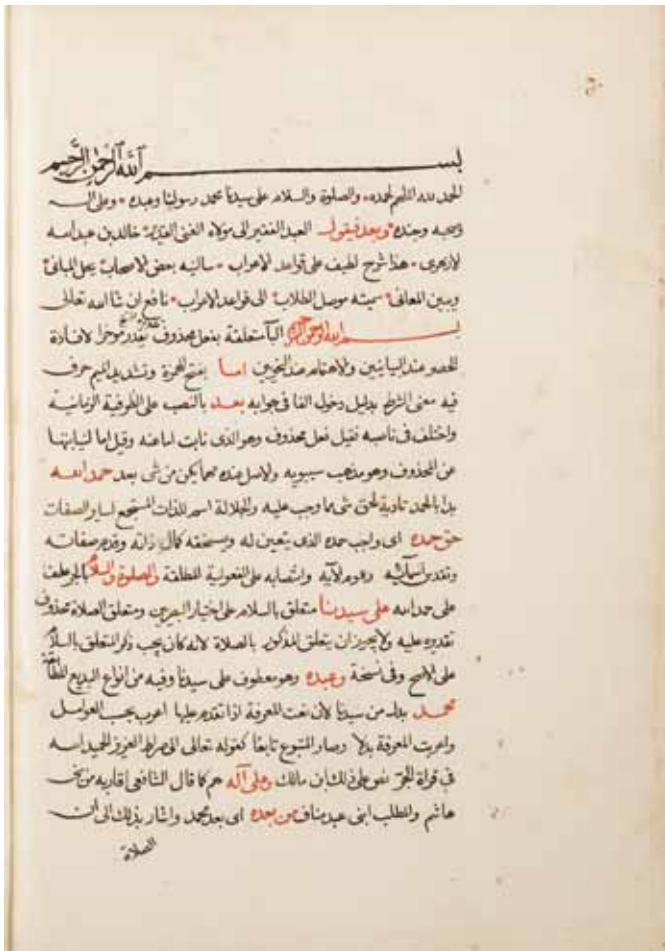 بسم الله الرحمن الرحيم
الحمد لله الملهم لحمده والصلوة والسلام على سيدنا محمد رسولنا وعبده وعلى اله
وصحبه وجنده وبعد فيقول العبد الفقير الى مولاه الغنى خالد بن عبد الله
الازهرى هذا شرح لطيف على قواعد الاعراب سالنيه بعض الاصحاب يحل المبانى
ويبين المعانى سميته موصل الطلاب الى قواعد الاعراب نافع ان شا الله تعالى
بسم الله الرحمن الرحيم البا متعلقة بفعل محذوف يقدر موخرا لافادة
الحصر عند البيانيين وللاهتمام عند النحويين اما بفتح الهمزة وتشديد الميم حرف
فيه معنى الشرط بدليل دخول الفا فى جوابه بعد بالنصب على الظرفية الزمانية
واختلف فى ناصبه فقيل فعل محذوف وهو الذى نابت اما عنه وقيل اما لنيابتها
عن المحذوف وهو مذهب سيبويه والاصل عنده مهما يكن من شى بعد حمد الله
بدا بالحمد تادية لحق شى مما وجب عليه والجلالة اسم للذات المستجمع لساير الصفات
حق حمده اى واجب حمده الذى يتعين له ويستحقه كمال ذاته وقدم صفاته
وتقدس اسمائه وعموم لآيه وانتصابه على المفعولية المطلقة والصلوة والسلام بالجر عطف
على حمد الله على سيدنا متعلق بالسلام على اختيار البصريين ومتعلق الصلاة محذوف
تقديره عليه ولا يجوز ان يتعلق المذكور بالصلاة لانه كان يجب ذكر المتعلق بالسلام
على الاصح وفى نسخة وعبده وهو معطوف على سيدنا وفيه من انواع البديع المطابقة
محمد بدل من سيدنا لان نعت المعرفة اذا تقدم عليها اعرب بحسب العوامل
واعربت المعرفة بدلا وصار المتبوع تابعا كقوله تعالى الى صراط العزيز الحميد الله
فى قراة الجر نص على ذلك ابن مالك وعلى آله هم كما قال الشافعى اقاربه من بنى
هاشم والمطلب ابنى عبد مناف من بعده اى بعد محمد واشار بذلك الى ان
الصلاة